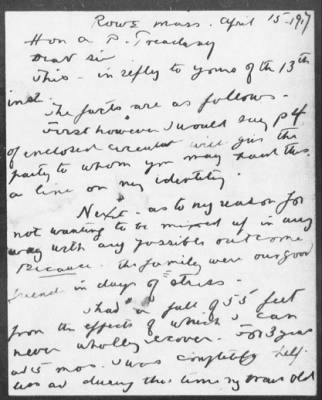 Rowe Mass. April 15-1917
Hon a P. Treadway
Dear Sir
This - in reply to yours of th 13th
inst.
The facts are as follows -
First however I would say p 4
of enclosed circular will give the
party to whom you may hand this
a line on my identity.
Next - as to my reason for
not wanting to be mixed up in any
way with any possible outcome
Because the family were our good
friend in days of stress.
I had a fall of 55 feet
from the effects of which I can
never wholly recover. For 3 years
ad 5 mos. I was completely help-
less ad during this time my years old